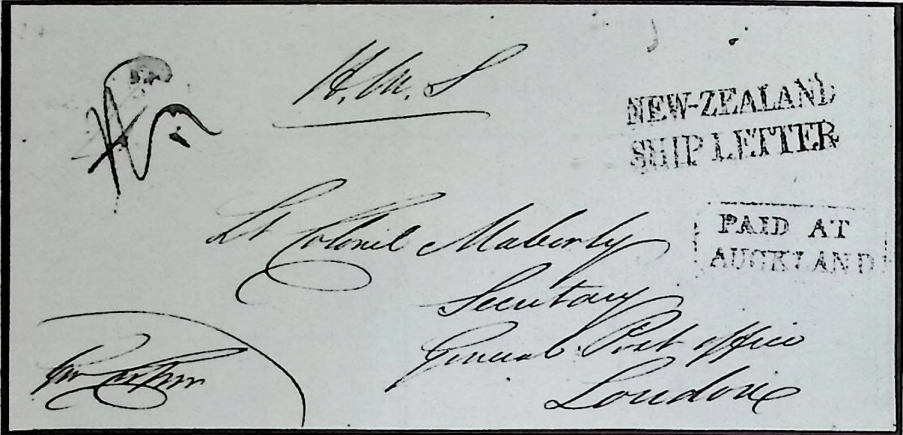 H. M. S
NEW-ZEALAND
SHIP LETTER
PAID AT
AUCKLAND
Lt Colonel Maberly
Secretary
General Post office
London